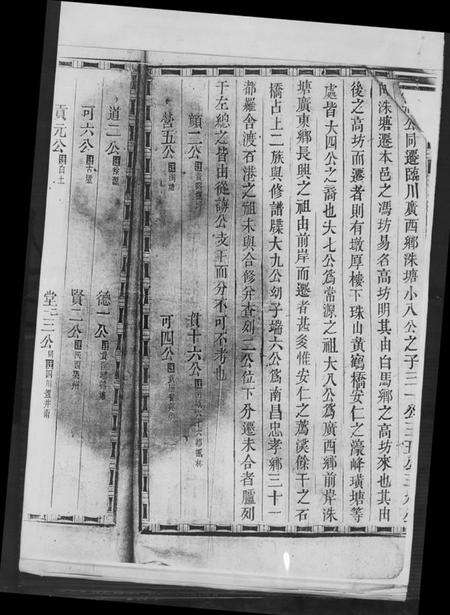 公同遷臨川廣西鄉洙塘小八公之子三一公三五公三九公
由洙塘遷本邑之馮坊易名高坊明其由白馬鄉之高坊來也其由
後之高坊而遷者則有墩厚樓下珠山黃鶴橋安仁之濠峰璜塘等
處皆大四公之裔也大七公為常源之祖大八公為廣西鄉前岸洙
塘廣東鄉長興之祖由前岸而遷者甚多惟安仁之萬溪餘干之石
橋占上二族與修譜牒大九公幼子端六公為南昌忠孝鄉三十一
都羅舍渡石港之祖未與合修并查刻二公位下外遷未合者臚列
于左總之皆由從謙公支下而分不可不考也
顏二公
十六公
五公
可四公
道二公
德一公
可六公
賢二公
貢元公
堂三公